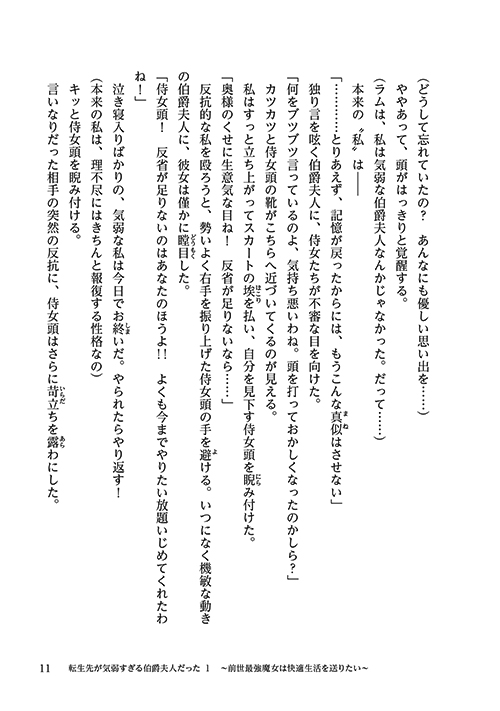 （どうして忘れていたの？　あんなにも優しい思い出を……）
ややあって、頭がはっきりと覚醒する。
（ラムは、私は気弱な伯爵夫人なんかじゃなかった。だって……）
本来の〝私〟は――
「…………とりあえず、記憶が戻ったからには、もうこんな真似はさせない」
独り言を呟く伯爵夫人に、侍女たちが不審な目を向けた。
「何をブツブツ言っているのよ、気持ち悪いわね。頭を打っておかしくなったのかしら？」
カツカツと侍女頭の靴がこちらへ近づいてくるのが見える。
私はすっと立ち上がってスカートの埃を払い、自分を見下す侍女頭を睨み付けた。
「奥様のくせに生意気な目ね！　反省が足りないなら……」
反抗的な私を殴ろうと、勢いよく右手を振り上げた侍女頭の手を避ける。いつになく機敏な動き
の伯爵夫人に、彼女は僅かに瞠目した。
「侍女頭！　反省が足りないのはあなたのほうよ!!　よくも今までやりたい放題いじめてくれたわ
ね！」
泣き寝入りばかりの、気弱な私は今日でお終いだ。やられたらやり返す！
（本来の私は、理不尽にはきちんと報復する性格なの）
キッと侍女頭を睨み付ける。
言いなりだった相手の突然の反抗に、侍女頭はさらに苛立ちを露わにした。
11　転生先が気弱すぎる伯爵夫人だった 1　～前世最強魔女は快適生活を送りたい～